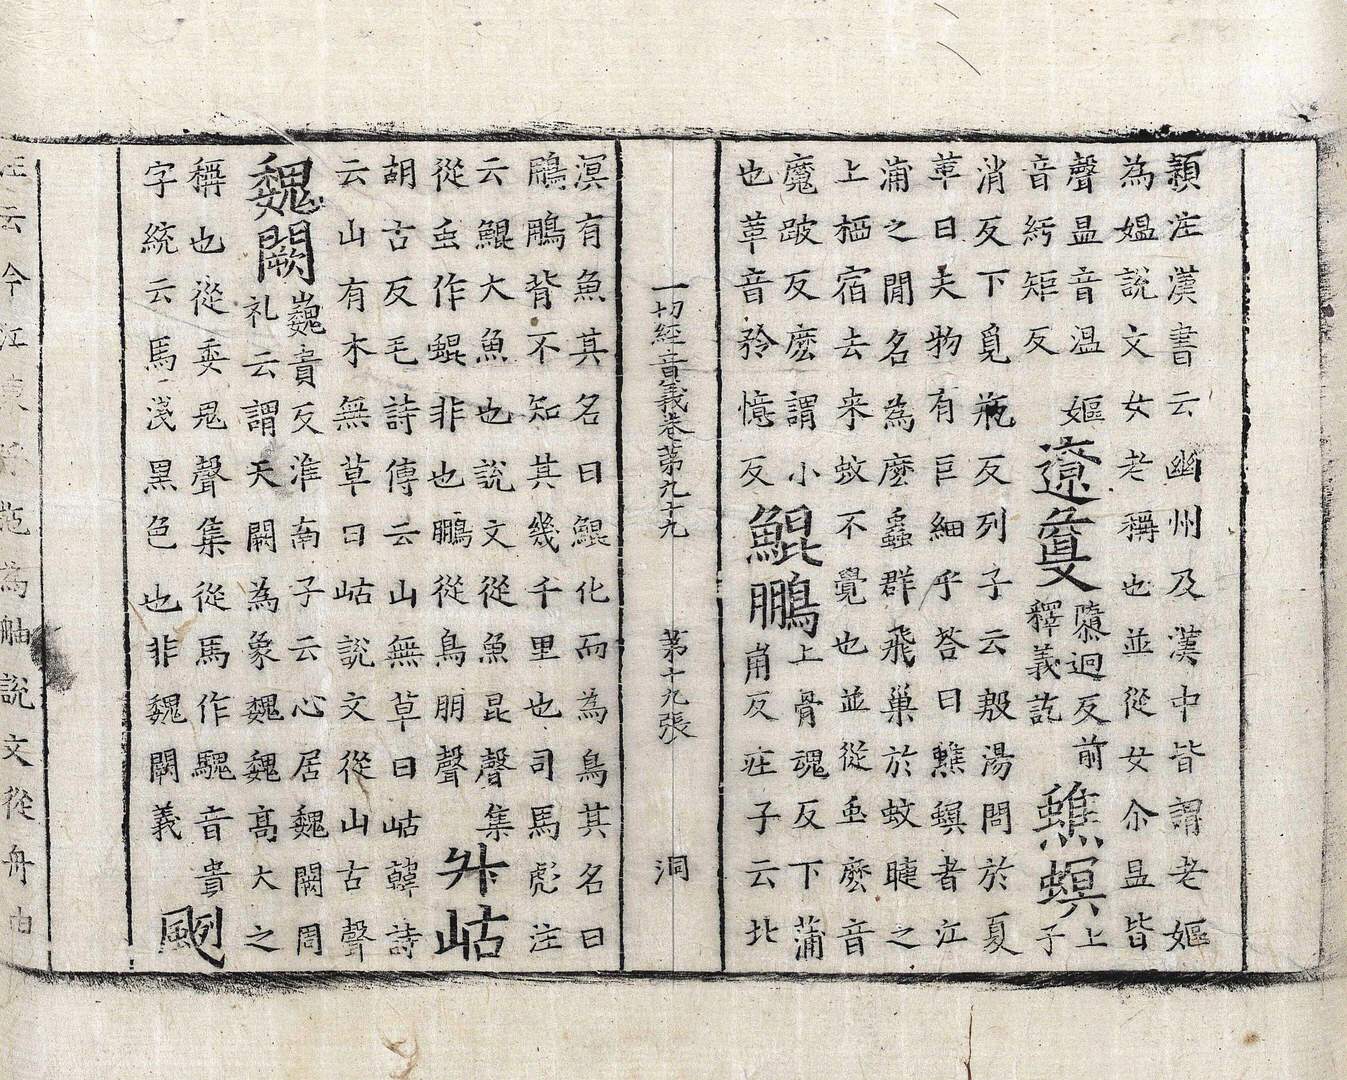 頴注漢書云幽州及漢中皆謂老嫗
為媼說文女老稱也並從女尒昷皆
聲昷音溫嫗
音紆矩反
遼敻
隳迥反前
釋義訖
蟭螟
上
子
消反下覓瓶反列子云殷湯問於夏
革曰夫物有巨細乎答曰蟭螟者江
浦之閒名為麼蟲群飛巢於蚊睫之
上栖宿去来蚊不覺也並從虫麼音
魔跛反麼謂小
也革音矜憶反
鯤鵬
上骨魂反下蒲
崩反莊子云北
一切經音義卷第九十九
第十九張
洞
溟有魚其名曰鯤化而為鳥其名曰
鵬鵬背不知其幾千里也司馬彪注
云鯤大魚也說文從魚昆聲集
從虫作蜫非也鵬從鳥朋聲
屺岵
胡古反毛詩傳云山無草曰岵韓詩
云山有木無草曰岵說文從山古聲
魏闕
巍貴反淮南子云心居魏闕周
礼云謂天闕為象魏魏高大之
稱也從委嵬聲集從馬作騩音貴
字統云馬淺黑色也非魏闕義
颲
注云今江東
為舳說文從舟由